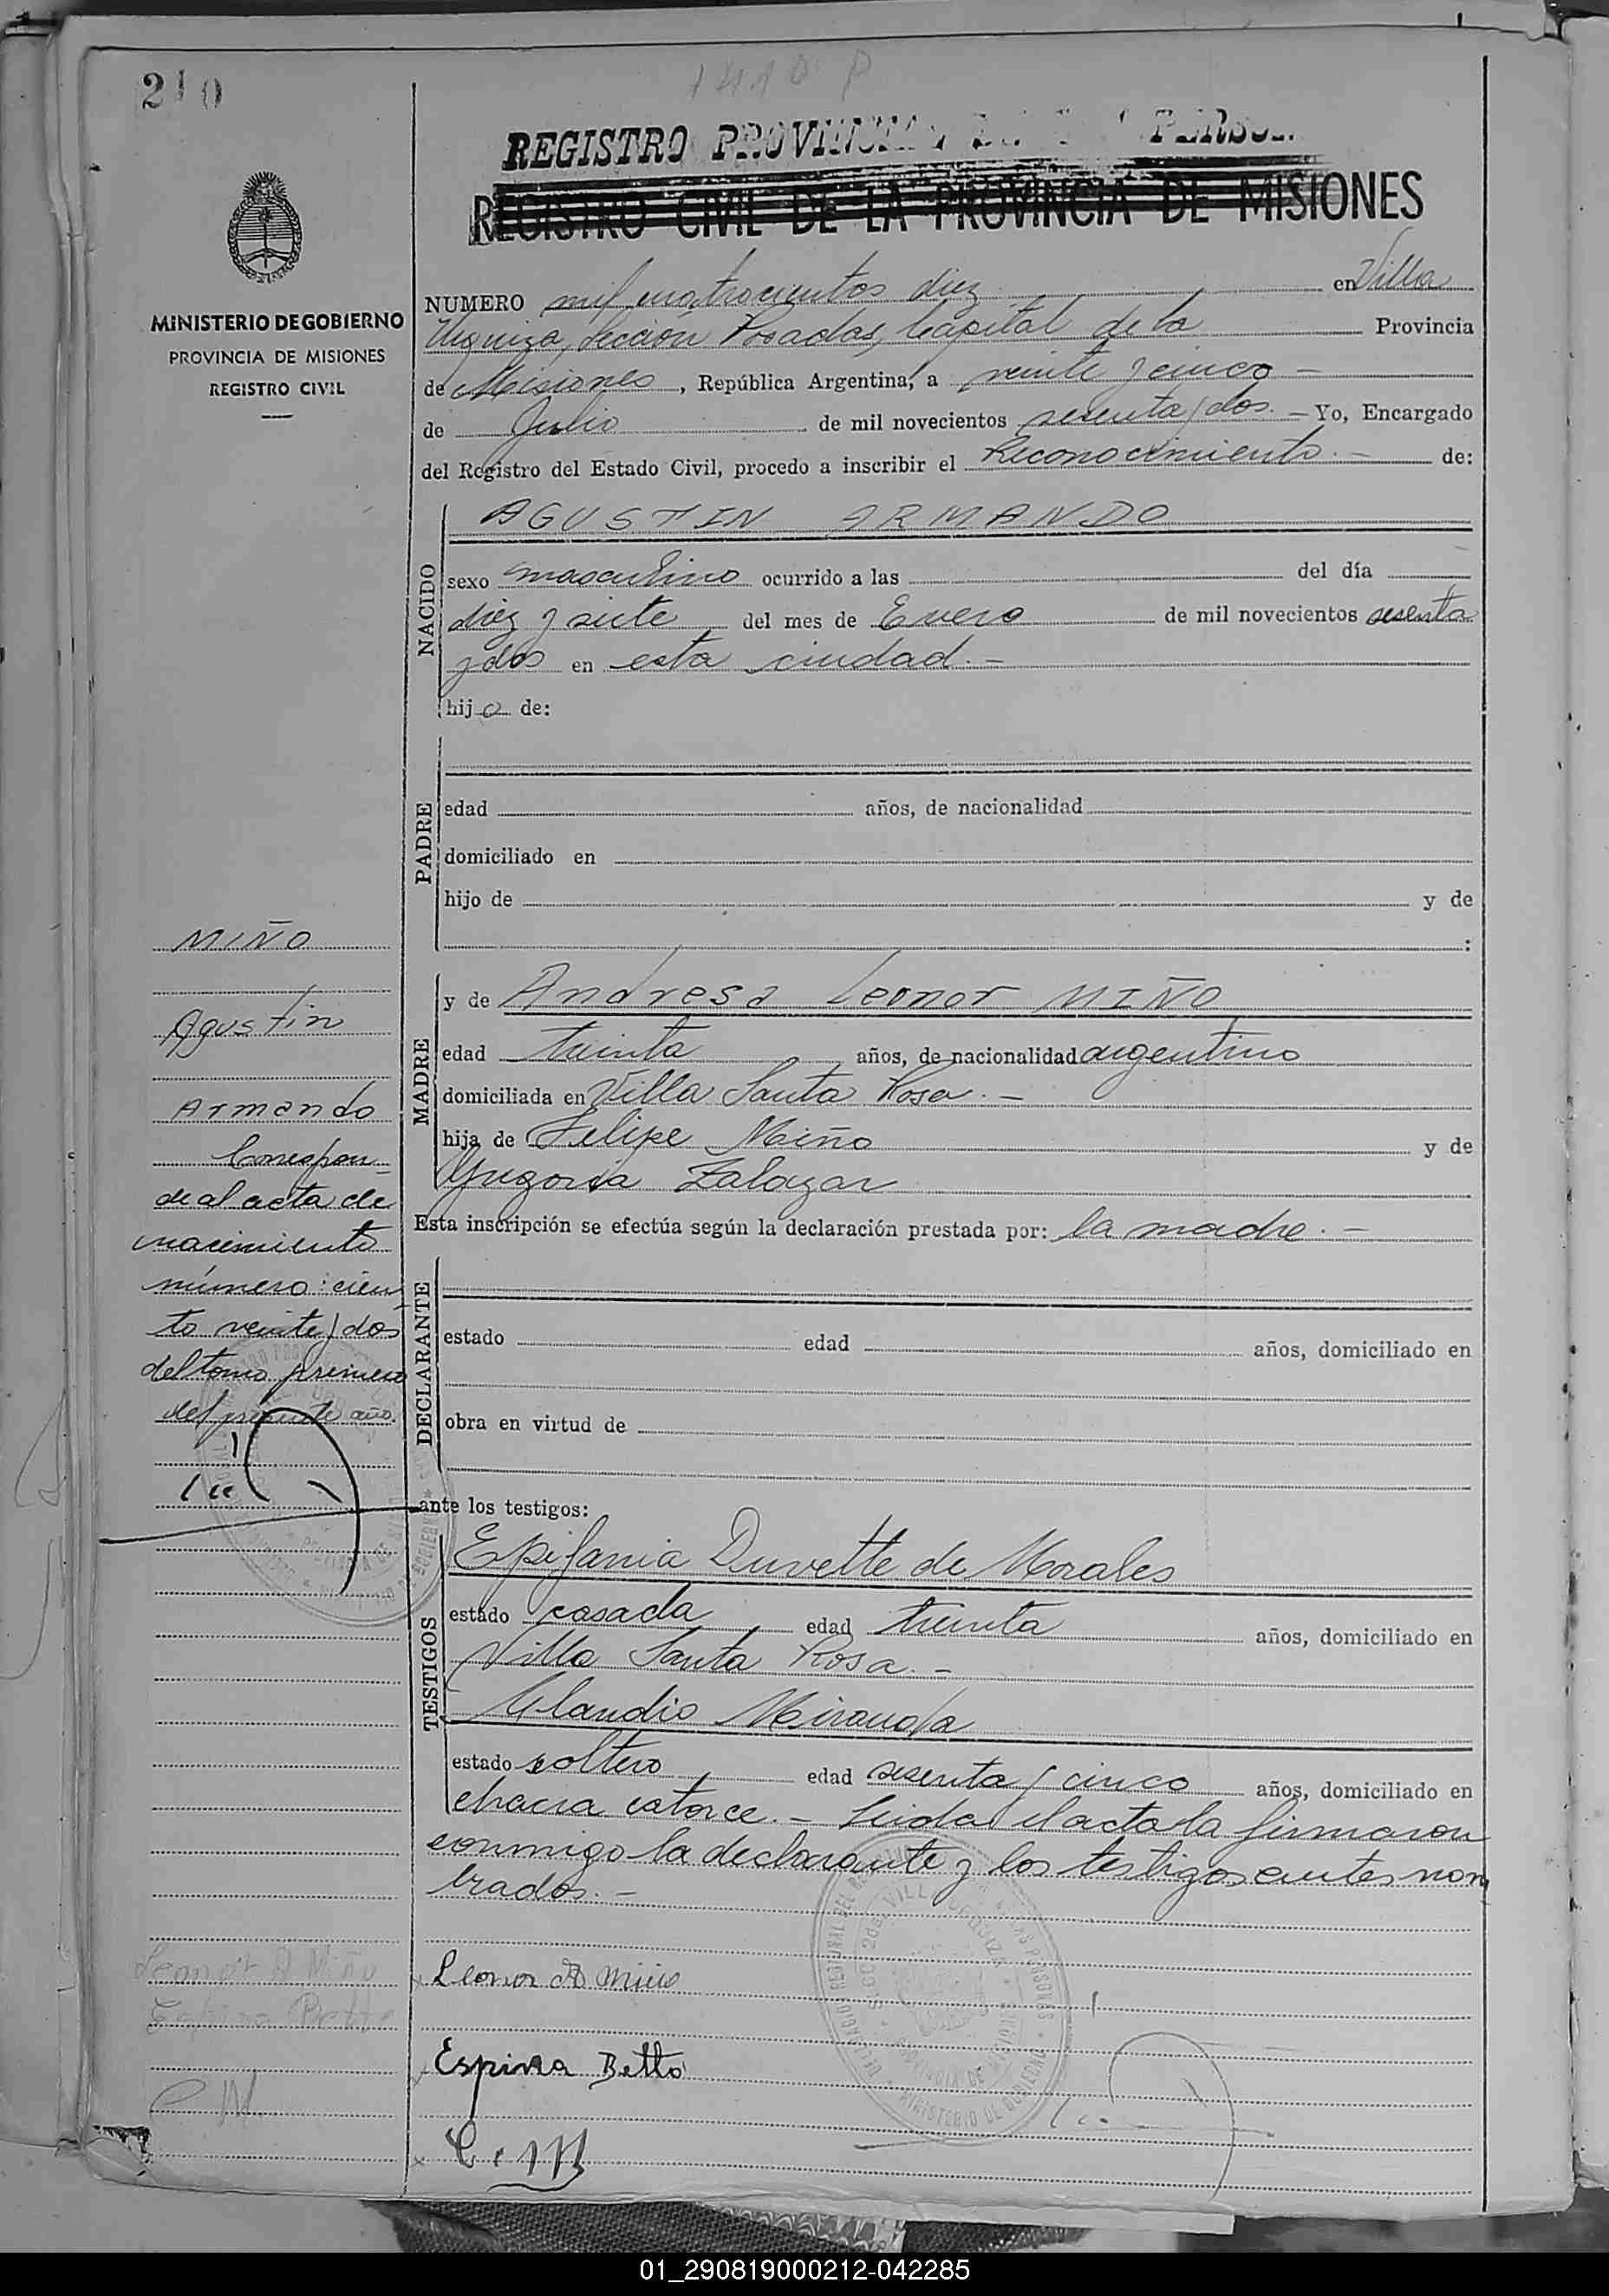 210
1410 P
REGISTRO PROVINCIAL PERSO
REGISTRO CIVIL DE LA PROVINCIA DE MISIONES
MINISTERIO DE GOBIERNO
PROVINCIA DE MISIONES
REGISTRO CIVIL
NUMERO mil cuatrocientos diez en Villa
Urquiza, Sección Posadas, Capital de la Provincia
de Misiones, República Argentina, a veinte y cinco -
de Julio de mil novecientos sesenta y dos. - Yo, Encargado
del Registro del Estado Civil, procedo a inscribir el Reconocimiento. - de:
NACIDO
AGUSTIN ARMANDO
sexo masculino ocurrido a las del día
diez y siete del mes de Enero de mil novecientos sesenta
y dos en esta ciudad. -
hijo de:
PADRE
edad años, de nacionalidad
domiciliado en
hijo de y de
:
MIÑO
Agustin
Armando
Correspon-
de al acta de
nacimiento
número: cien-
to veinte y dos
del tomo primero
del presente año.
MADRE
y de Andresa Leonor MIÑO
edad treinta años, de nacionalidad argentino
domiciliada en Villa Santa Rosa. -
hija de Felipe Miño y de
Gregoria Zalazar
Esta inscripción se efectúa según la declaración prestada por: la madre. -
DECLARANTE
estado edad años, domiciliado en
obra en virtud de
ante los testigos:
TESTIGOS
Epifania Duvette de Morales
estado casada edad treinta años, domiciliado en
Villa Santa Rosa. -
Claudio Miranda
estado soltero edad sesenta y cinco años, domiciliado en
chacra catorce. - Leida el acta la firmaron
conmigo la declarante y los testigos antes nom
brados. -
Leonor A Miño
Leonor A Miño
Espina Betto
C. M
C. M
01_290819000212-042285